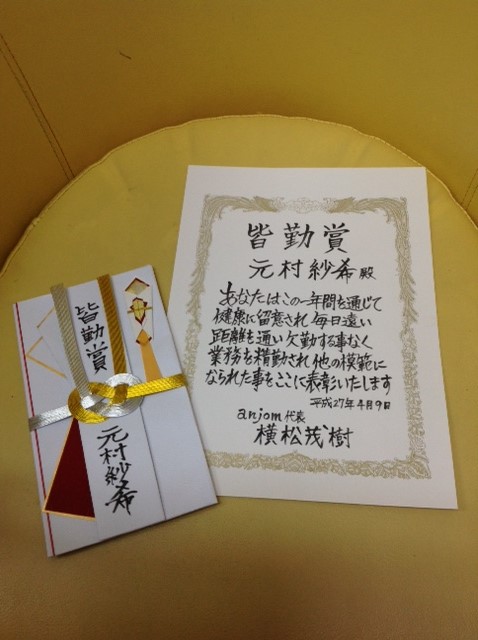 皆勤賞
元村紗希殿
あなたはこの一年間を通じて
健康に留意され毎日遠い
距離を通い欠勤する事なく
業務を精勤され他の模範に
なられた事をここに表彰いたします
平成27年4月9日
anjom代表
横松茂樹
皆勤賞
元村紗希